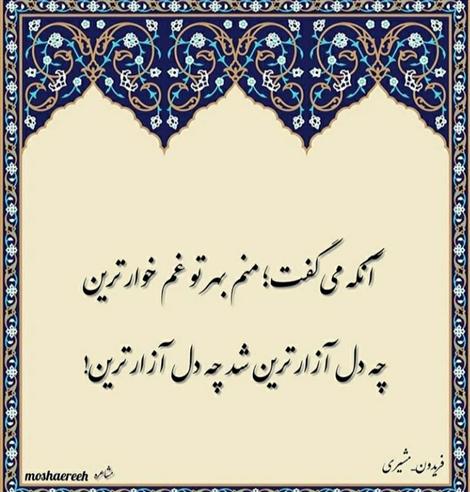 آنکه می گفت؛ منم بهر تو غم خوارترین
چه دل آزارترین شد چه دل آزارترین!
فریدون_مشیری
مشاعره moshaereeh